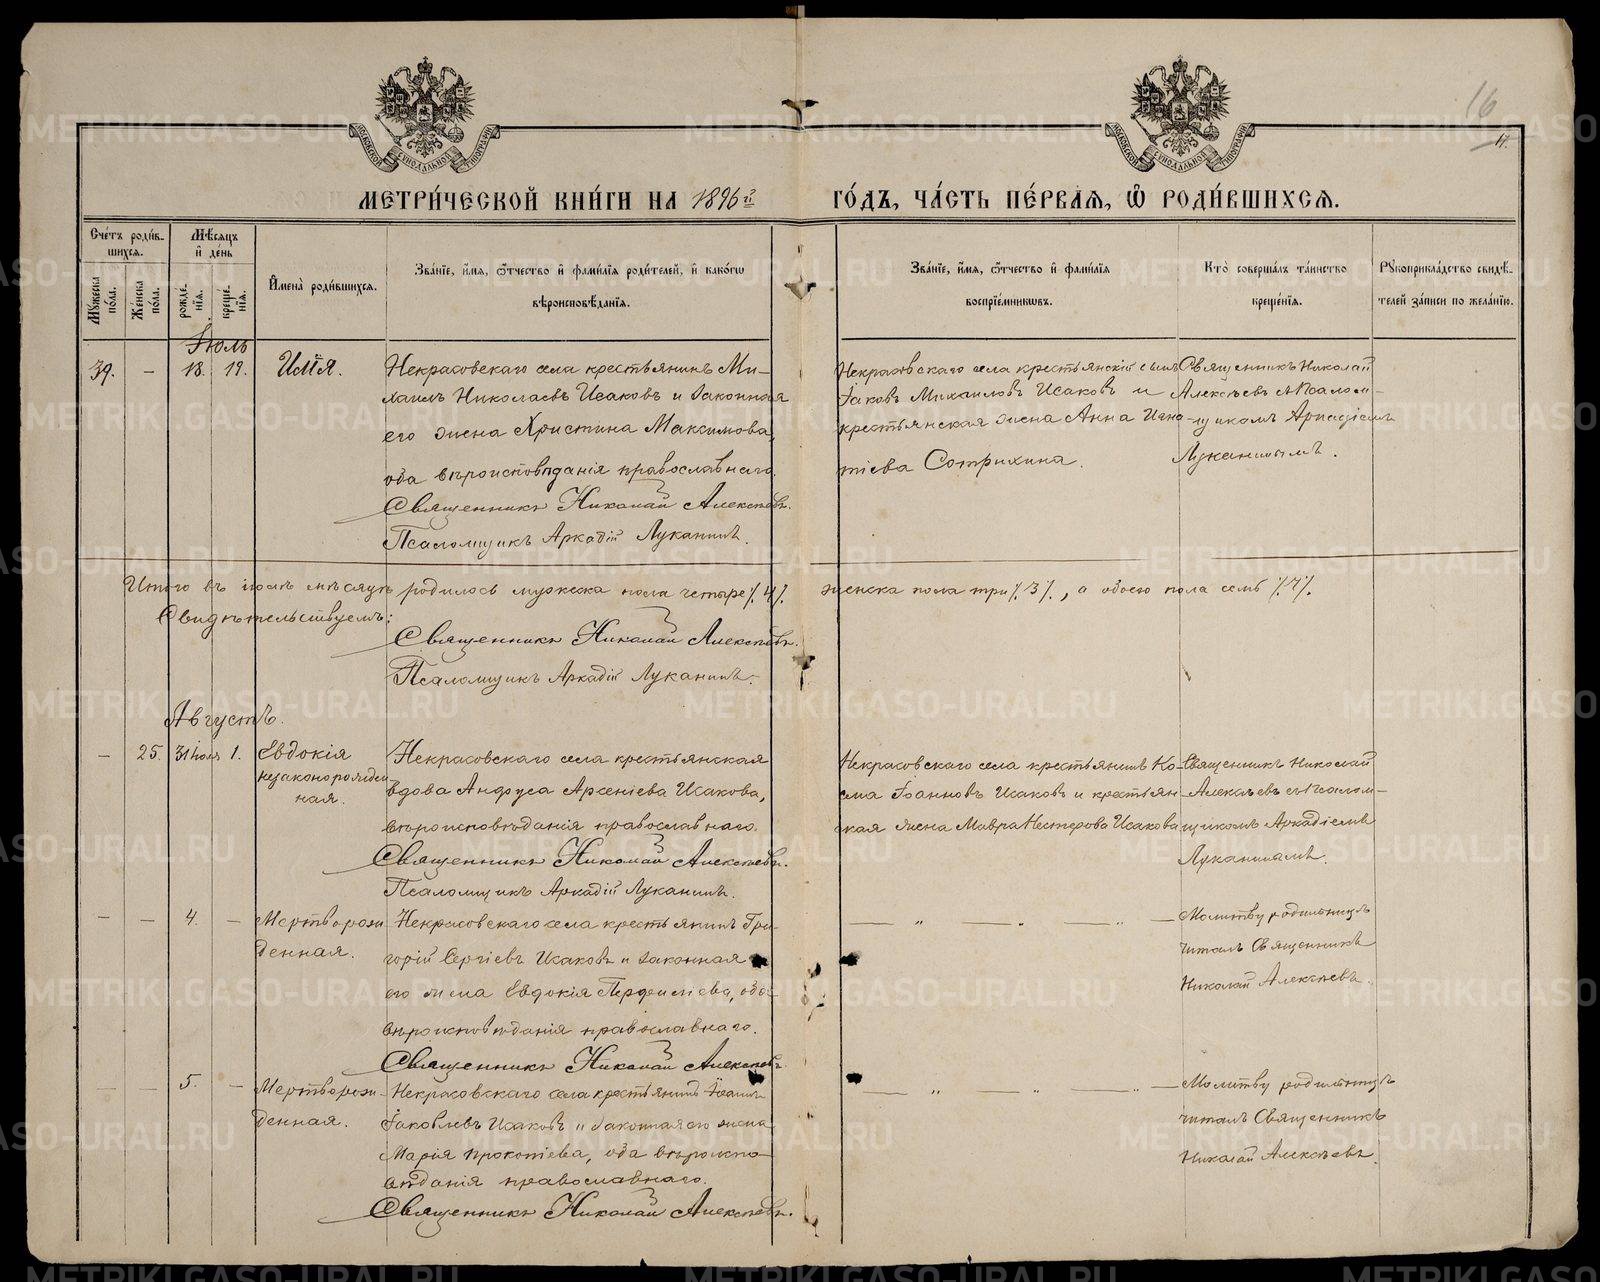 16
17.
МОСКОВСКОЙ СѴНОДАЛЬНОЙ ТИПОГРАФІИ
МОСКОВСКОЙ СѴНОДАЛЬНОЙ ТИПОГРАФІИ
МЕТРИ́ЧЕСКОЙ КНИ́ГИ НА 1896й ГО́ДЪ, ЧА́СТЬ ПЕ́РВАЯ, Ѡ РОДИ́ВШИХСЯ.
Сче́тъ роди́в-
шихся.
Мѣ́сяцъ
и де́нь
Мꙋжеска по́ла.
Же́нска по́ла.
рожде́нїя.
креще́нїя.
Имена̀ роди́вшихся.
Зва́нїе, и́мя, ѻ҆́тчество и фами́лїя роди́телей, и како́гѡ
вѣроисповѣ́данїя.
Зва́нїе, и́мя, ѻ҆́тчество и фами́лїя
воспрїе́мникѡвъ.
Кто̀ соверша́лъ та́инство
креще́нїя.
Рꙋкоприкла́дство свидѣ́-
телей за́писи по жела́нїю.
Іюль
39. — 18. 19. Илія.
Некрасовскаго села крестьянинъ Ми-
хаилъ Николаевъ Исаковъ и законная
его жена Христина Максимова,
оба вѣроисповѣданія православнаго.
Священникъ Николай Алексѣевъ.
Псаломщикъ Аркадій Луканинъ.
Некрасовскаго села крестьянскій сынъ
Іаковъ Михаиловъ Исаковъ и
крестьянская жена Анна Игна-
тіева Сотрихина.
Священникъ Николай
Алексѣевъ съ Псалом-
щикомъ Аркадіемъ
Луканинымъ.
Итого въ іюлѣ мѣсяцѣ родилось мужска пола четыре /.4/. женска пола три /.3/., а обоего пола семь /.7/.
Свидѣтельствуемъ:
Священникъ Николай Алексѣевъ.
Псаломщикъ Аркадій Луканинъ.
Августъ.
— 25. 31 іюля 1. Евдокія
незаконорожден
ная.
Некрасовскаго села крестьянская
вдова Арсеніева Исакова,
вѣроисповѣданія православнаго.
Священникъ Николай Алексѣевъ.
Псаломщикъ Аркадій Луканинъ.
Некрасовскаго села крестьянинъ Ко-
сма Іоанновъ Исаковъ и крестьян-
ская жена Мавра Нестерова Исакова
Священникъ Николай
Алексѣевъ съ Псалом-
щикомъ Аркадіемъ
Луканинымъ.
— — 4. — Мертворож
денная.
Некрасовскаго села крестьянинъ Гри-
горій Сергіевъ Исаковъ и законная
его жена Евдокія Перфиліева, оба
вѣроисповѣданія православнаго.
Священникъ Николай Алексѣевъ.
— „ — „ — „ —
Молитву родильницѣ
читалъ Священникъ
Николай Алексѣевъ.
— — 5. — Мертворож-
денная.
Некрасовскаго села крестьянинъ Іоаннъ
Іаковлевъ Исаковъ и законная его жена
Марія Прокопіева, оба вѣроиспо-
вѣданія православнаго.
Священникъ Николай Алексѣевъ.
— „ — „ — „ —
Молитву родильницѣ
читалъ Священникъ
Николай Алексѣевъ.
METRIKI.GASO-URAL.RU